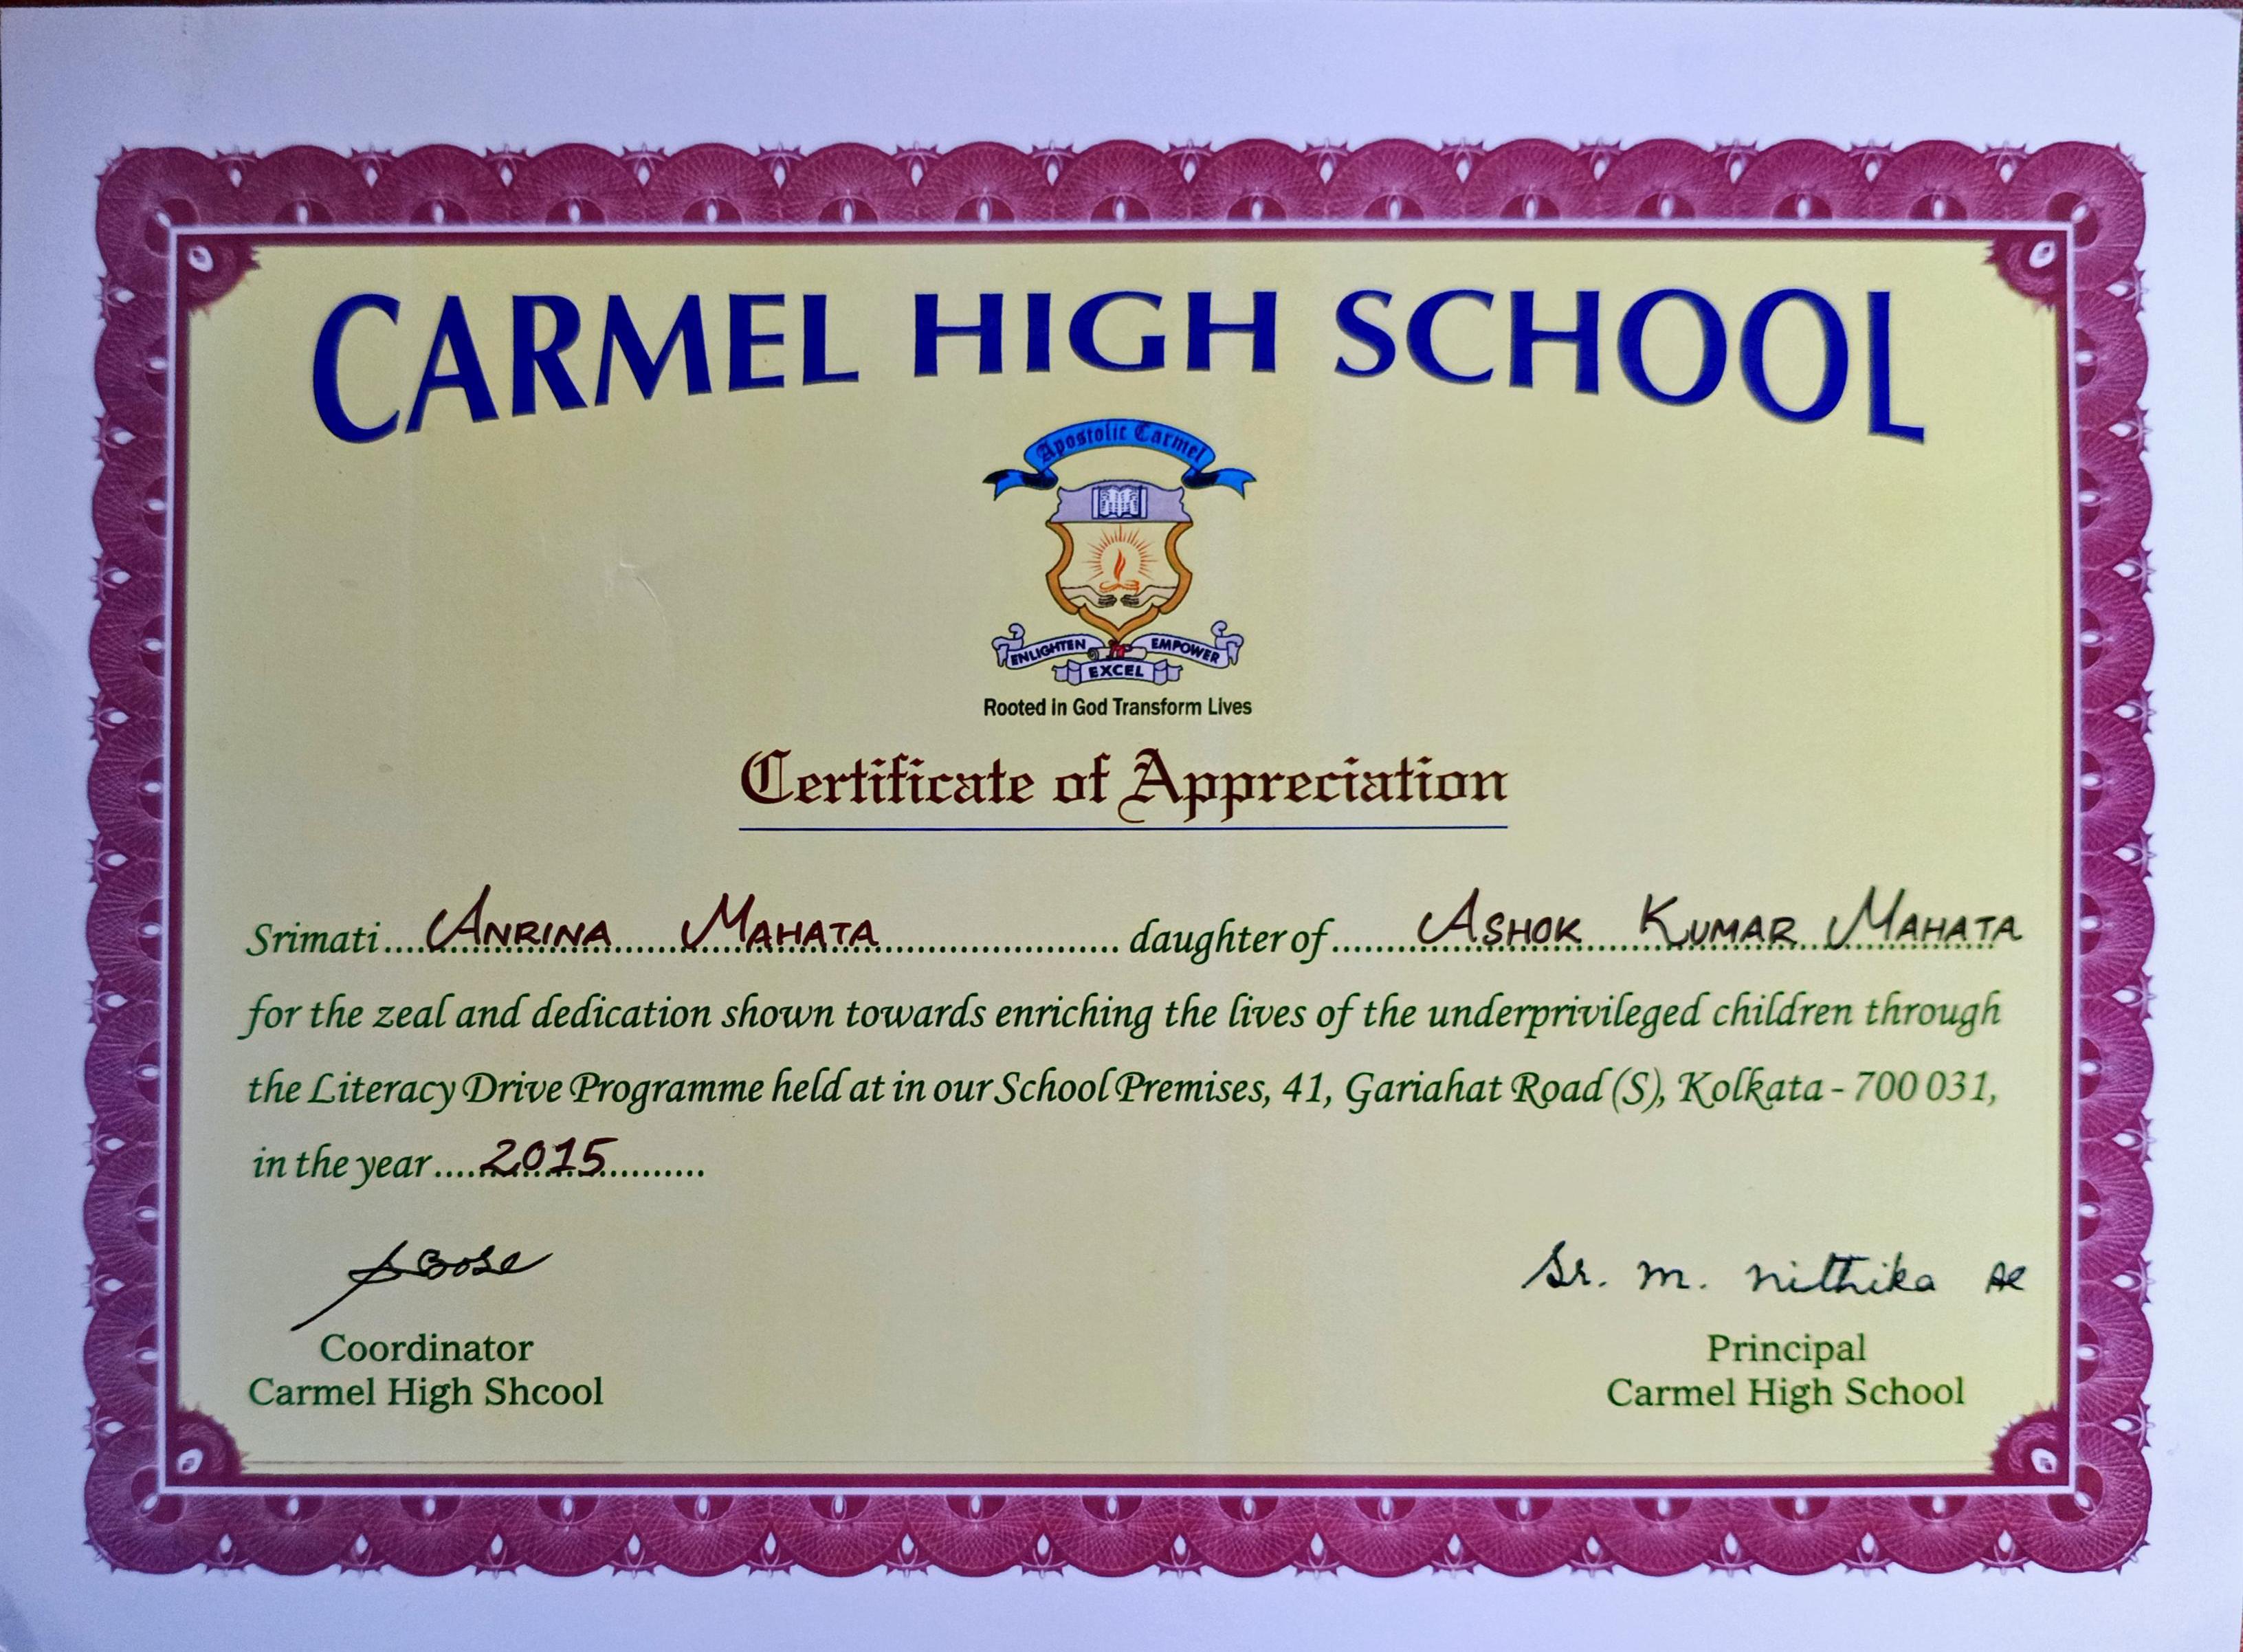 CARMEL HIGH SCHOOL
Apostolic Carmel
ENLIGHTEN EMPOWER
EXCEL
Rooted in God Transform Lives
Certificate of Appreciation
Srimati....ANRINA MAHATA.................... daughter of........ASHOK KUMAR MAHATA
for the zeal and dedication shown towards enriching the lives of the underprivileged children through
the Literacy Drive Programme held at in our School Premises, 41, Gariahat Road (S), Kolkata - 700 031,
in the year....2015..........
SBose Sr. M. Nithika AC
Coordinator Principal
Carmel High Shcool Carmel High School